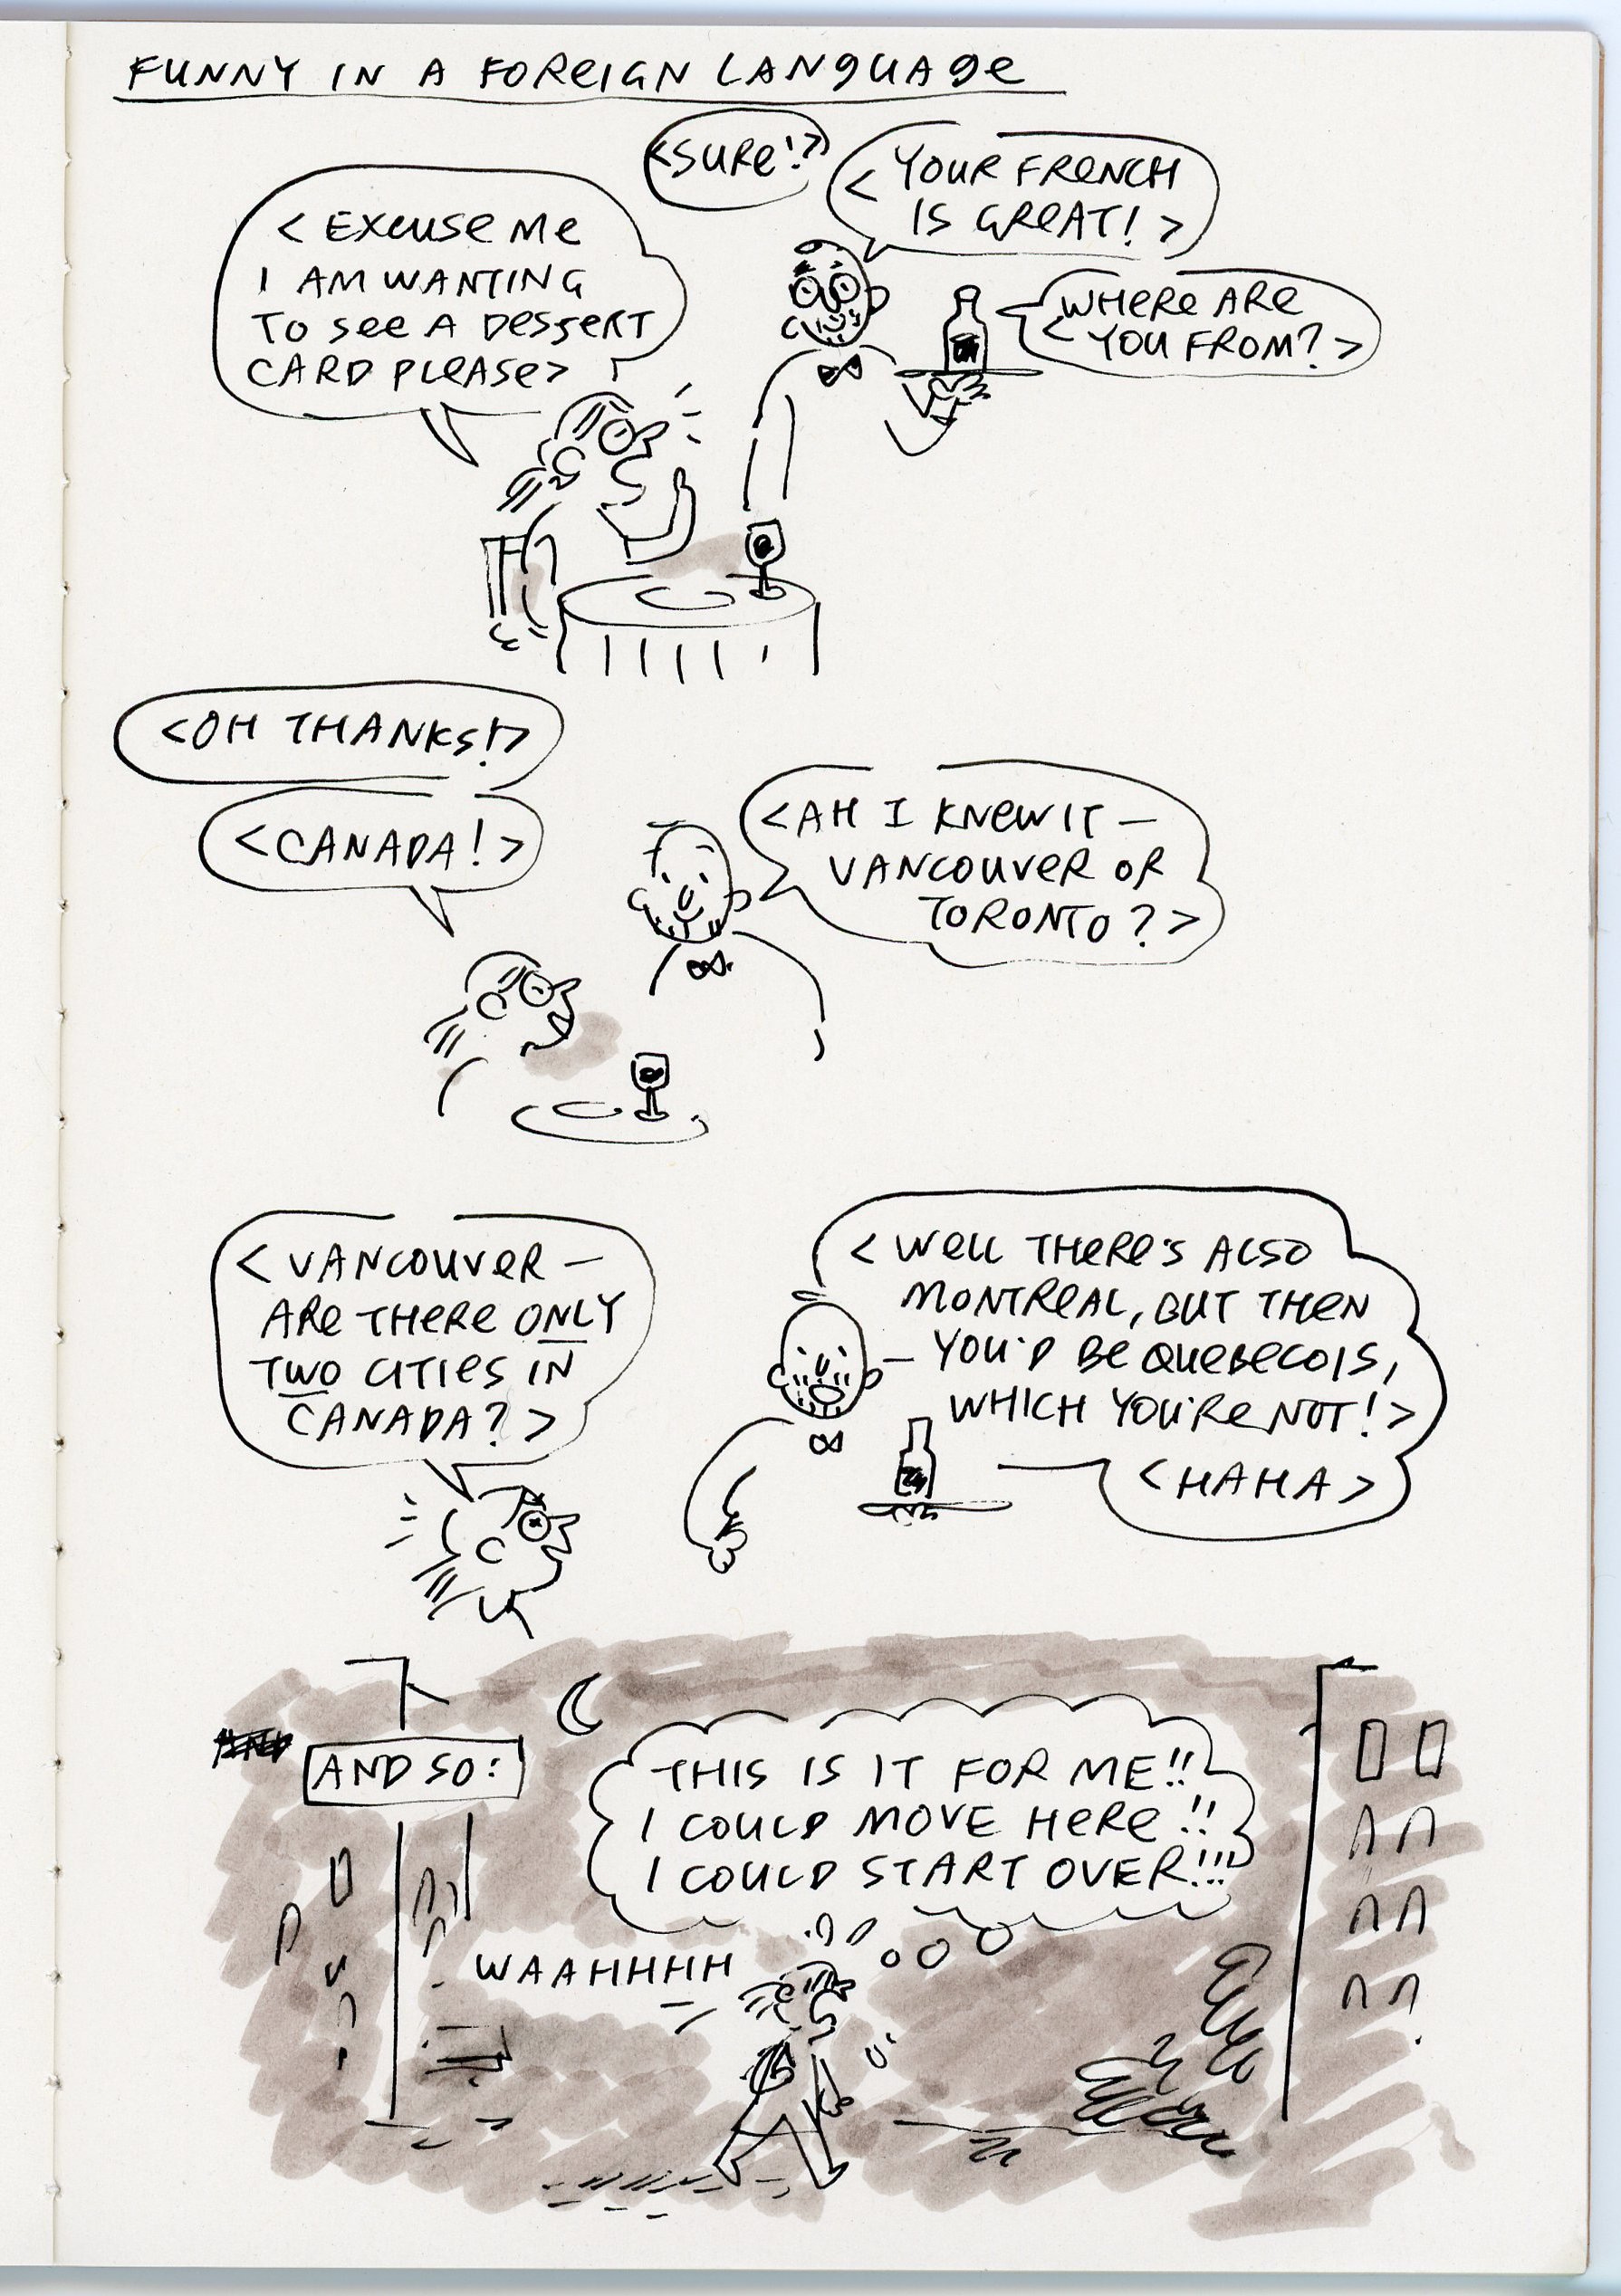 FUNNY IN A FOREIGN LANGUAGE
< EXCUSE ME
I AM WANTING
TO SEE A DESSERT
CARD PLEASE>
<SURE!>
< YOUR FRENCH
IS GREAT! >
< WHERE ARE
YOU FROM? >
<OH THANKS!>
<CANADA!>
<AH I KNEW IT —
VANCOUVER OR
TORONTO? >
< VANCOUVER —
ARE THERE ONLY
TWO CITIES IN
CANADA? >
< WELL THERE'S ALSO
MONTREAL, BUT THEN
YOU'D BE QUEBECOIS,
WHICH YOU'RE NOT! >
<HAHA>
AND SO:
THIS IS IT FOR ME!!
I COULD MOVE HERE!!
I COULD START OVER!!!
WAAHHHH